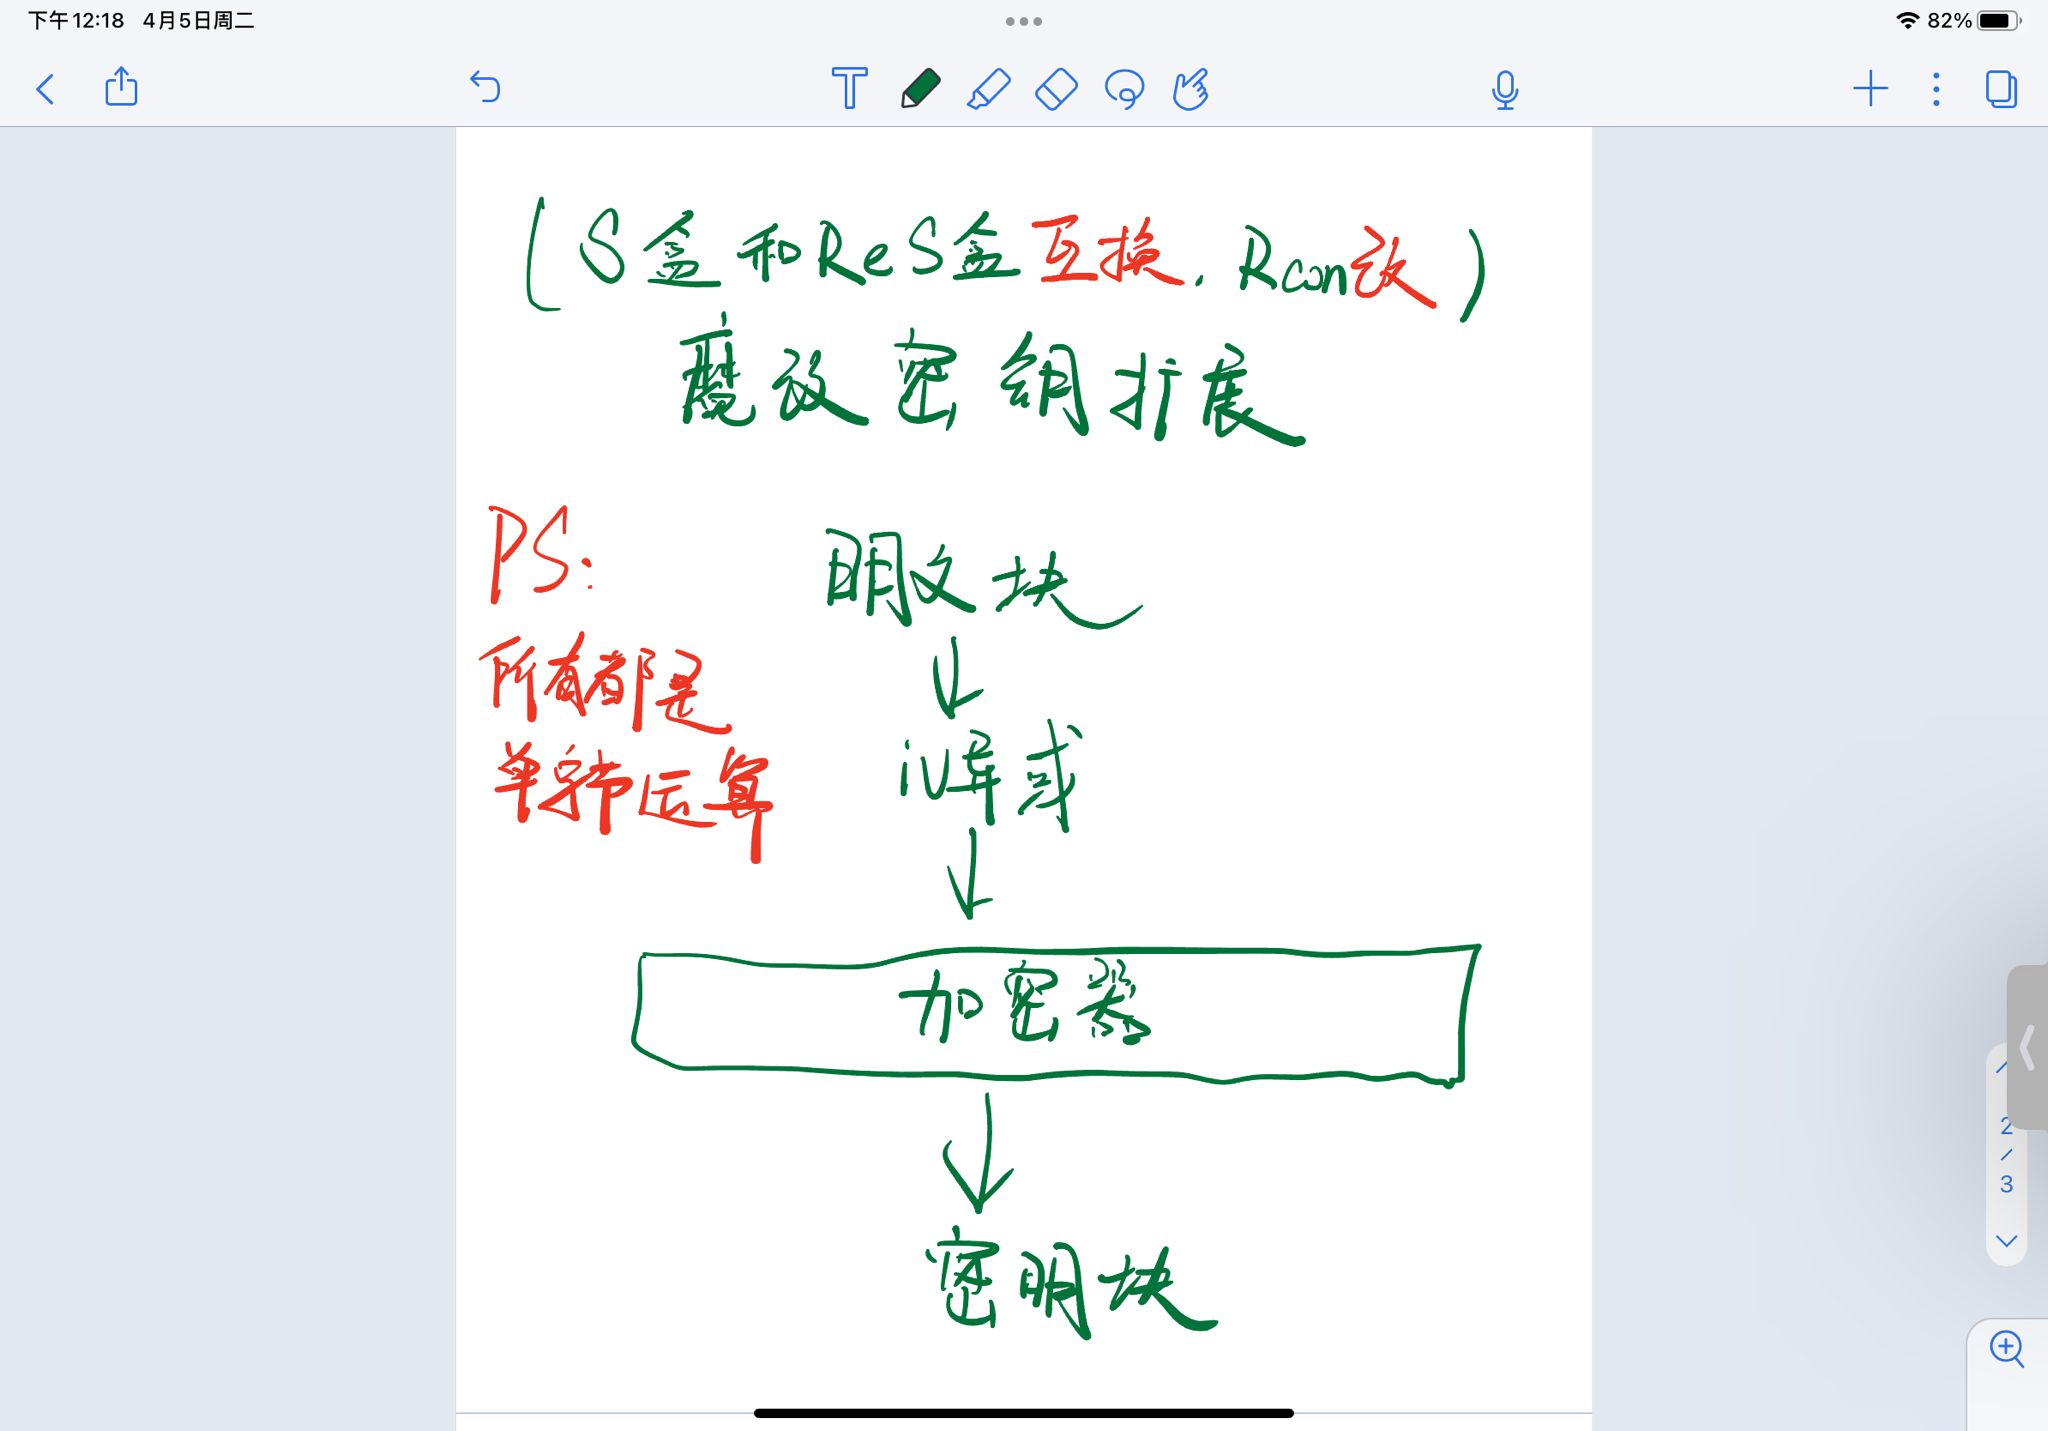 下午12:18 4月5日周二
82%
(S盒和ReS盒互换，Rcon改)
魔改密钥扩展
PS:
所有都是
单字节运算
明文块
iv异或
加密器
密明块
2
/
3